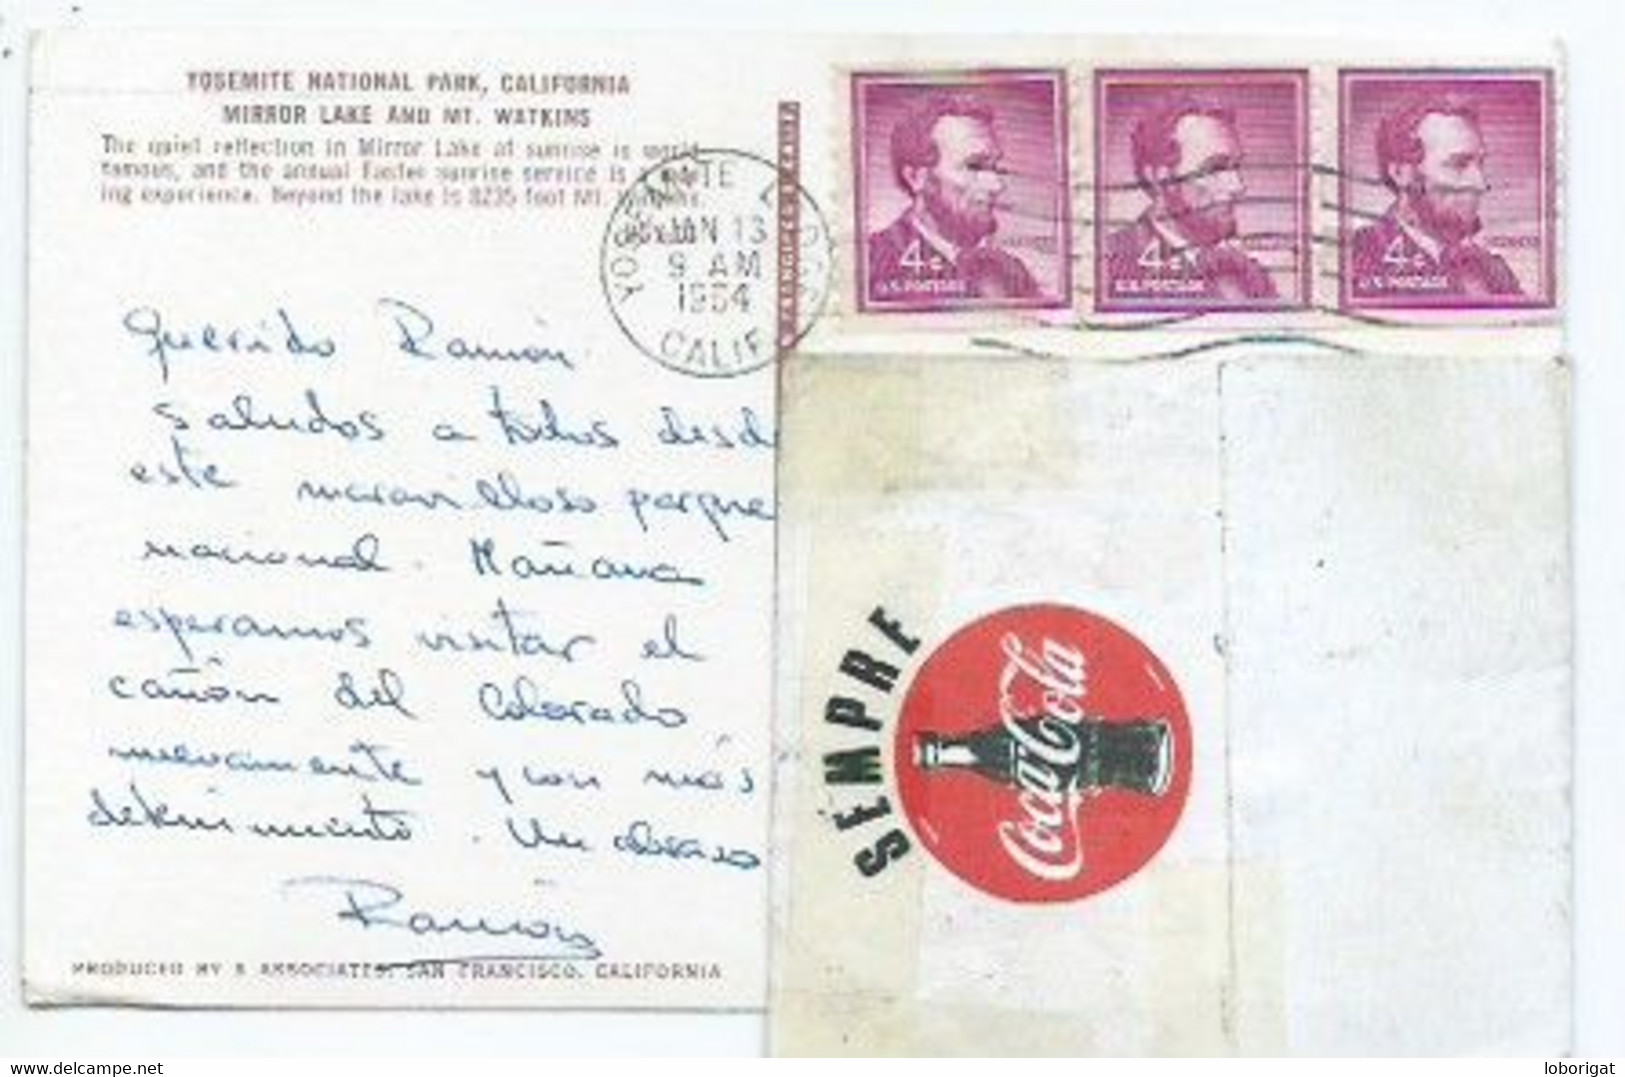 YOSEMITE NATIONAL PARK, CALIFORNIA
MIRROR LAKE AND MT. WATKINS
The quiet reflection in Mirror Lake at sunrise is world
famous, and the annual Easter sunrise service is a
ing experience. Beyond the lake is 8235 foot Mt. Watkins.
JAN 13
9 AM
1964
CALIF
4¢
U.S. POSTAGE
4¢
U.S. POSTAGE
4¢
U.S. POSTAGE
Querido Ramón
saludos a todos desde
este maravilloso parque
nacional. Mañana
esperamos visitar el
cañón del Colorado
nuevamente y con más
detenimiento. Un abrazo
Ramón
PRODUCED BY ASSOCIATES, SAN FRANCISCO, CALIFORNIA
SEMPRE
Coca-Cola
delcampe.net
loborigat